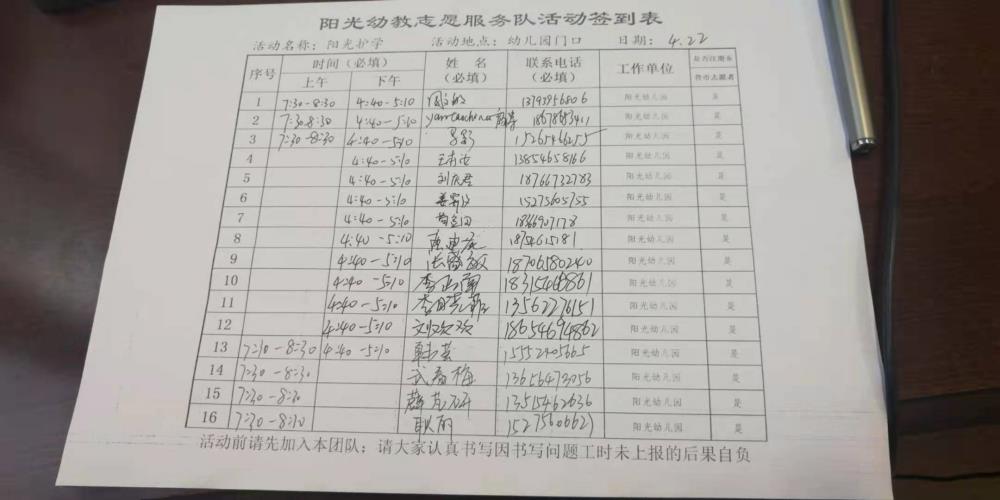 阳光幼教志愿服务队活动签到表
活动名称：阳光护学 活动地点：幼儿园门口 日期：4.22
序号 时间（必填） 姓名（必填） 联系电话（必填） 工作单位 是否注册东营市志愿者
上午 下午
1 7:30-8:30 4:40-5:10 13793956806 阳光幼儿园 是
2 7:30-8:30 4:40-5:10 阳光幼儿园 是
3 7:30-8:30 4:40-5:10 15265466255 阳光幼儿园 是
4 4:40-5:10 13854658166 阳光幼儿园 是
5 4:40-5:10 刘庆君 18766732783 阳光幼儿园 是
6 4:40-5:10 15275605755 阳光幼儿园 是
7 4:40-5:10 阳光幼儿园 是
8 4:40-5:10 阳光幼儿园 是
9 4:40-5:10 18706680240 阳光幼儿园 是
10 4:40-5:10 阳光幼儿园 是
11 4:40-5:10 13562276151 阳光幼儿园 是
12 4:40-5:10 刘欢欢 18654694862 阳光幼儿园 是
13 7:30-8:30 4:40-5:10 韩芸 15552405665 阳光幼儿园 是
14 7:30-8:30 武春梅 13656473056 阳光幼儿园 是
15 7:30-8:30 13515462636 阳光幼儿园 是
16 7:30-8:30 耿丽 15275606621 阳光幼儿园 是
活动前请先加入本团队；请大家认真书写因书写问题工时未上报的后果自负